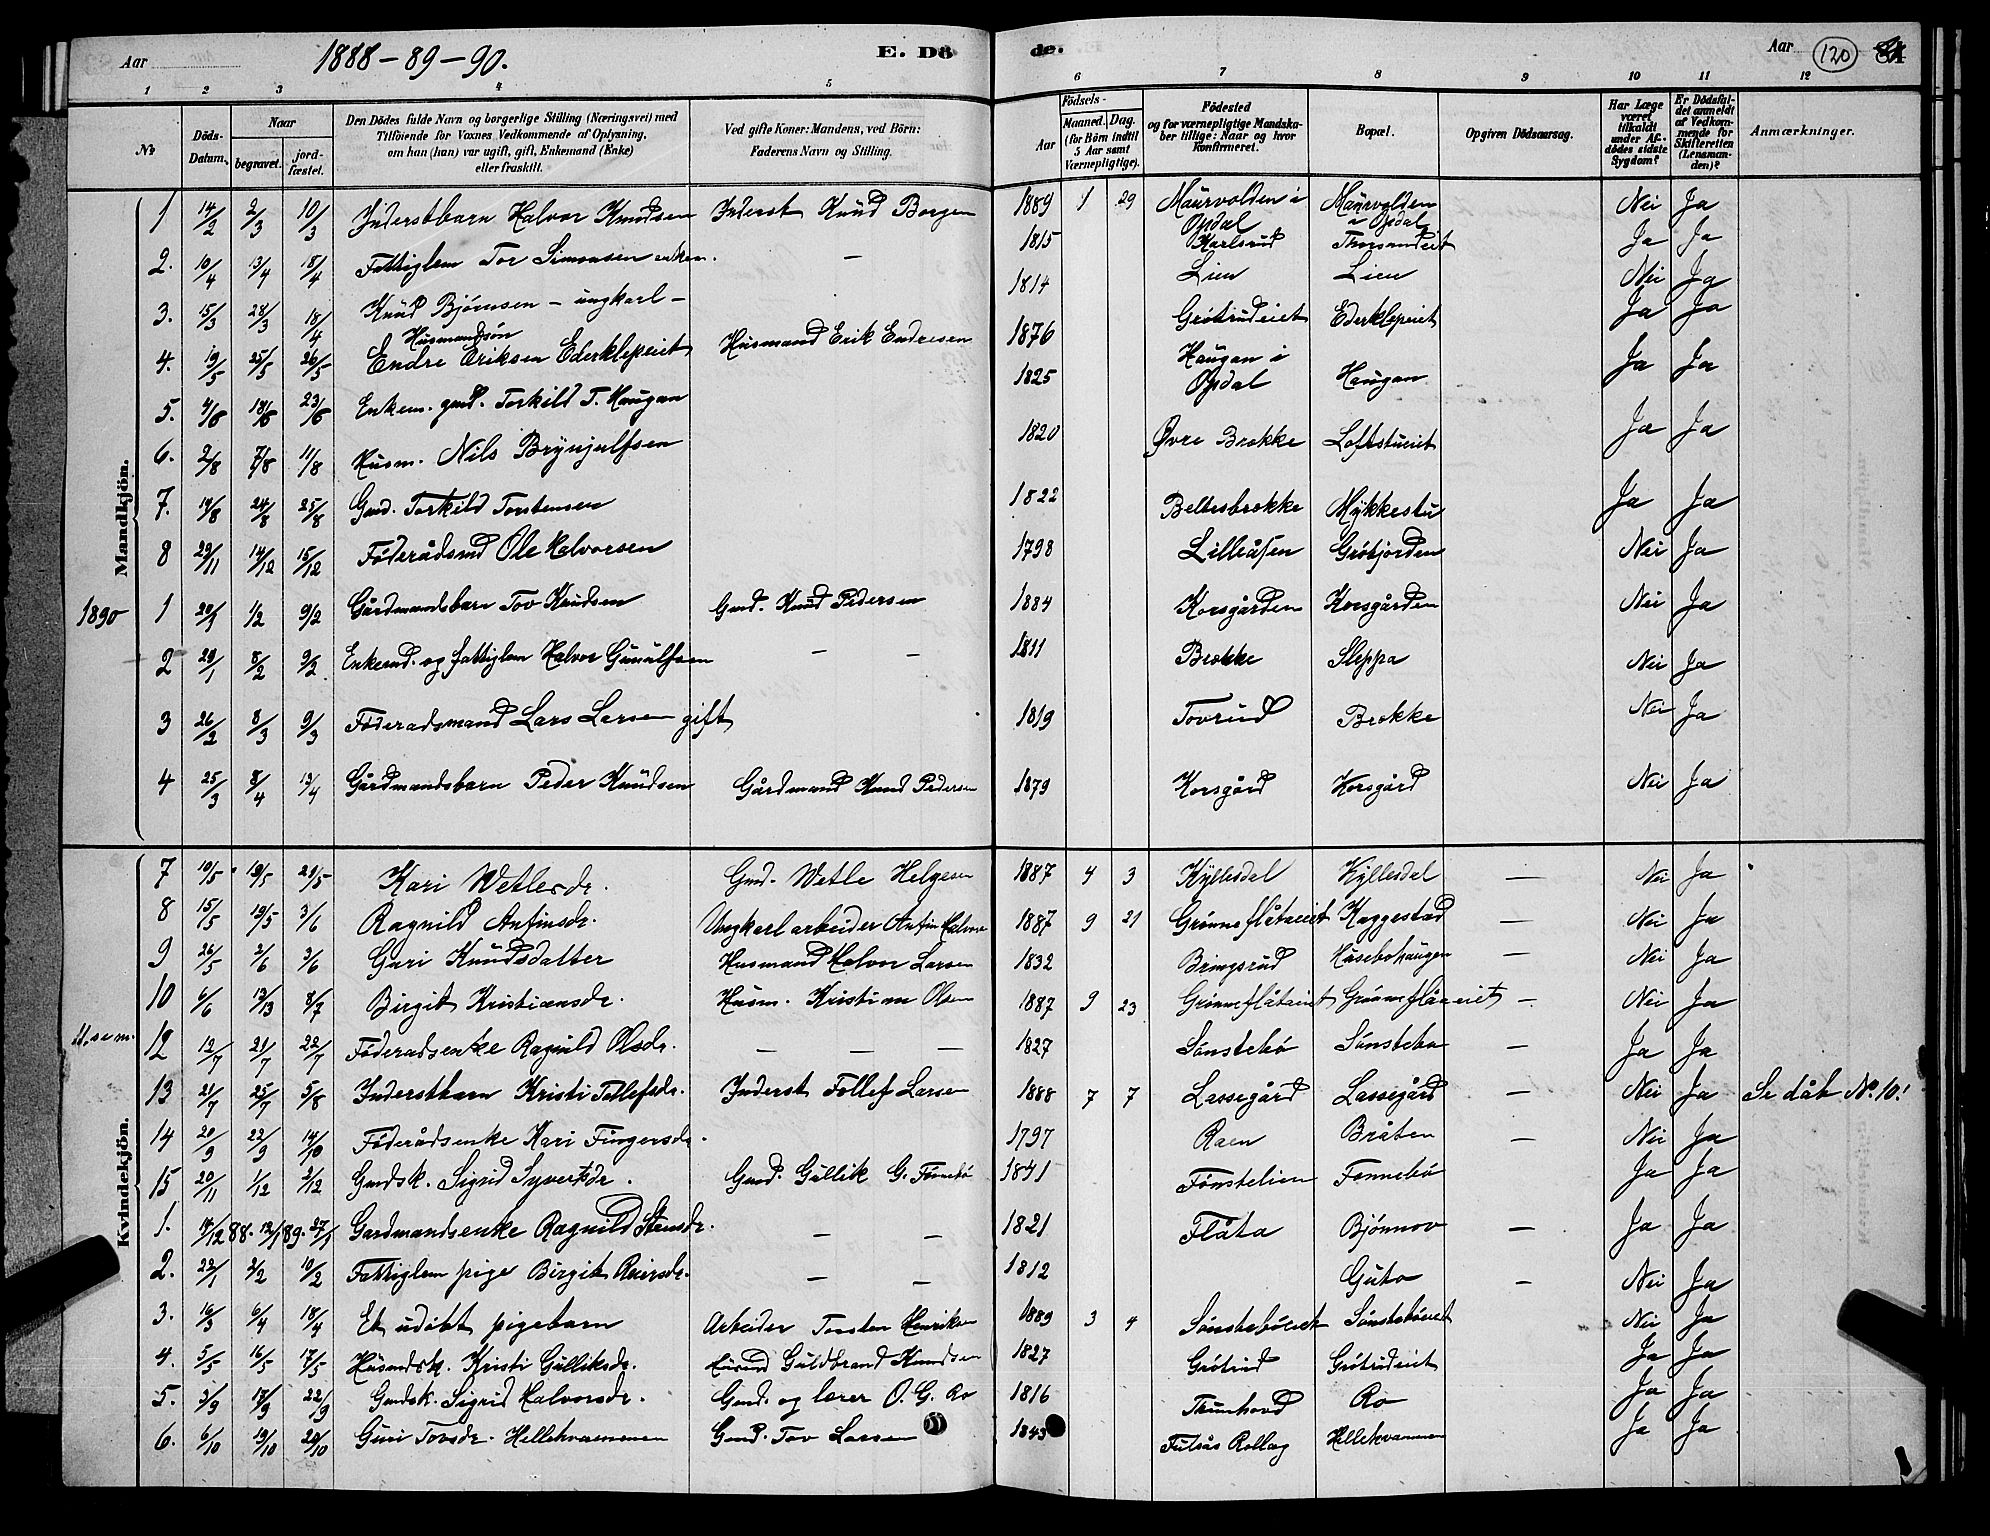 Aar 1888-89-90. E. Dö de. Aar 120
1 2 3 4 5 6 7 8 9 10 11 12
No. Döds-Datum. Naar begravet. jordfæstet. Den Dödes fulde Navn og borgerlige Stilling (Næringsvei) med Tilföiende for Voxnes Vedkommende af Oplysning, om han (hun) var ugift, gift, Enkemand (Enke) eller fraskilt. Ved gifte Koner: Mandens, ved Börn: Faderens Navn og Stilling. Födsels- Aar Maaned. Dag. (for Börn indtil 5 Aar samt Værnepligtige). Födested og for værnepligtige Mandskaber tillige: Naar og hvor Konfirmeret. Bopæl. Opgiven Dödsaarsag. Har Læge været tilkaldt under Afdödes sidste Sygdom? Er Dödsfaldet anmeldt af Vedkommende for Skifteretten (Lensmanden)? Anmærkninger.
Mandkjön.
1 14/2 2/3 10/3 Inderstbarn Halvor Knudsen Inderst Knud Borgen 1889 1 29 Maurvolden i Opdal Maurvolden i Opdal Nei Ja
2. 10/4 13/4 18/4 Fattiglem Tor Simonsen enkem. — 1815 Karlsrud Thorsrudeiet Ja Ja
3. 15/3 28/3 18/4 Knud Bjørnsen - ungkarl - 1814 Lien Lien Nei Ja
4. 19/5 25/5 26/5 Husmandssøn Endre Eriksen Ederklepeiet Husmand Erik Endresen 1876 Grøtrudeiet Ederklepeiet Ja Ja
5. 4/6 18/6 23/6 Enkem. gmd. Torkild T. Haugan 1825 Haugan i Opdal Haugan Ja Ja
6. 2/8 7/8 11/8 Husm. Nils Brynjulfsen 1820 Øvre Brøkke Loftstueiet Ja Ja
7. 19/8 24/8 25/8 Gmd. Torkild Torstensen 1822 Beltesbrøkke Mykkestu Ja Ja
8 29/11 14/12 15/12 Føderådsmd Ole Halvorsen 1798 Lilleåsen Grøtjorden Nei Ja
1890 1 20/1 1/2 9/2 Gårdmandsbarn Tov Knudsen Gmd. Knud Pedersen 1884 Korsgården Korsgården Nei Ja
2 29/1 8/2 9/2 Enkemd. og fattiglem Halvor Gunulfsen — — 1811 Brøkke Sleppa Nei Ja
3 26/2 8/3 9/3 Føderadsmand Lars Larsen gift 1819 Tovrud Brøkke Nei Ja
4 25/3 8/4 13/4 Gårdmandsbarn Peder Knudsen Gårdmand Knud Pedersen 1879 Korsgård Korsgård Nei Ja
Kvindekjön.
7 10/5 19/5 21/5 Kari Wetlesdr. Gmd. Wetle Helgesen 1887 4 3 Kyllesdal Kyllesdal — Nei Ja
8 15/5 19/5 3/6 Ragnild Anfinsdr. Ungkarl arbeider Anfin Halvors 1887 9 21 Grønneflåteiet Kaggestad — Nei Ja
9 26/5 2/6 3/6 Guri Knudsdatter Husmand Halvor Larsen 1832 Bringsrud Husebohaugen — Nei Ja
10 6/6 13/13 8/7 Birgit Kristiansdr. Husm. Kristian Olsen 1887 9 23 Grønneflåteiet Grønneflåteiet — Nei Ja
12 12/7 21/7 22/7 Føderadsenke Ragnild Olsdr. — — — 1827 Sønstebø Sønstebø — Ja Ja
13 21/7 25/7 5/8 Inderstbarn Kristi Tollefsdr. Inderst Tollef Larsen 1888 7 7 Lassegård Lassegård — Nei Ja Se dåb No. 10!
14 20/9 22/9 14/10 Føderådsenke Kari Fingersdr. 1797 Raen Bråten — Nei Ja
15 20/11 1/12 2/12 Gmdsk. Sigrid Syvertsdr. Gmd. Gullik G. Fønnebø 1841 Fønstelien Fønnebø Ja Ja
1. 14/12 88. 12/1 89. 27/1 Gardmandsenke Ragnild Stensdr. — — 1821 Flåta Bjønnov — Ja Ja
2. 22/1 2/2 10/2 Fattiglem pige Birgit Reiersdr. — — 1812 Guto — Nei Ja
3. 16/3 6/4 18/4 Et udøbt pigebarn Arbeider Torsten Henriksen 1889 3 4 Sønstebøeiet Sønstebøeiet Nei Ja
4. 5/5 16/5 17/5 Husmdsk. Kristi Gulliksdr. Husmd Guldbrand Knudsen 1827 Grøtrud Grøtrudeiet Ja Ja
5. 3/9 17/9 22/9 Gmdsk. Sigrid Halvorsdr. Gmd. og lærer O. G. Ro 1816 Tunhovd Ro Ja Ja
6. 6/10 19/10 20/10 Guri Tovsdr. Hellekvammen Gmd. Tov Larsen 1843 Fulsås Rollag Hellekvammen Ja Ja